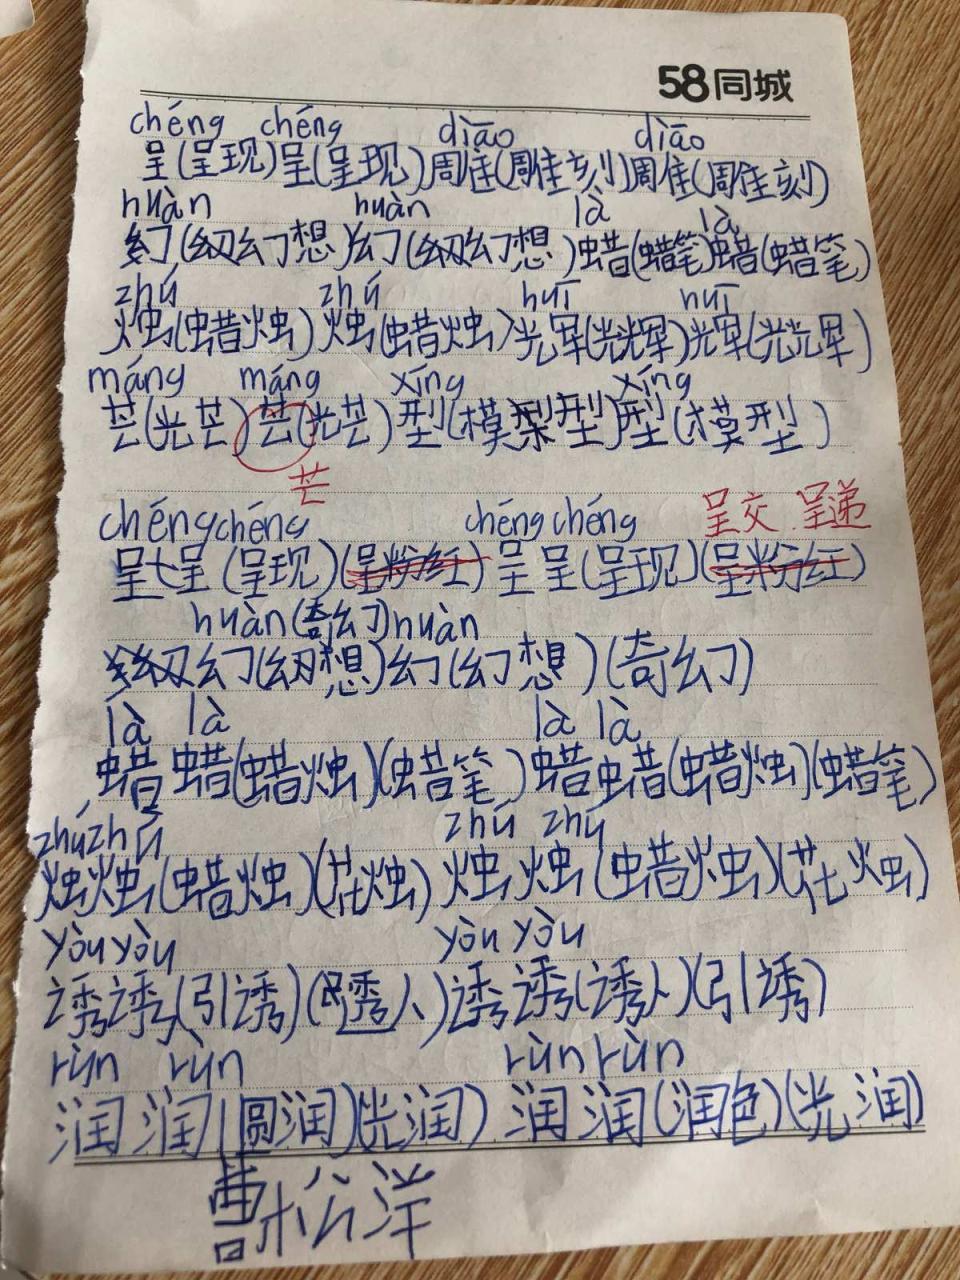 58同城
chéng chéng diāo diāo
呈(呈现)呈(呈现)雕(雕刻)雕(雕刻)
huàn huàn là là
幻(幻想)幻(幻想)蜡(蜡笔)蜡(蜡笔)
zhú zhú huī huī
烛(蜡烛)烛(蜡烛)辉(光辉)辉(光辉)
máng máng xíng xíng
芒(光芒)芒(光芒)型(模型)型(模型)
芒
chéng chéng chéng chéng 呈交 呈递
呈呈(呈现)(呈粉红)呈呈(呈现)(呈粉红)
huàn(奇幻)huàn
幻(幻想)幻(幻想)(奇幻)
là là là là
蜡蜡(蜡烛)(蜡笔)蜡蜡(蜡烛)(蜡笔)
zhú zhú zhú zhú
烛烛(蜡烛)(花烛)烛烛(蜡烛)(花烛)
yòu yòu yòu yòu
诱诱(引诱)(诱人)诱诱(诱人)(引诱)
rùn rùn rùn rùn
润润(圆润)(光润)润润(润色)(光润)
曹松洋